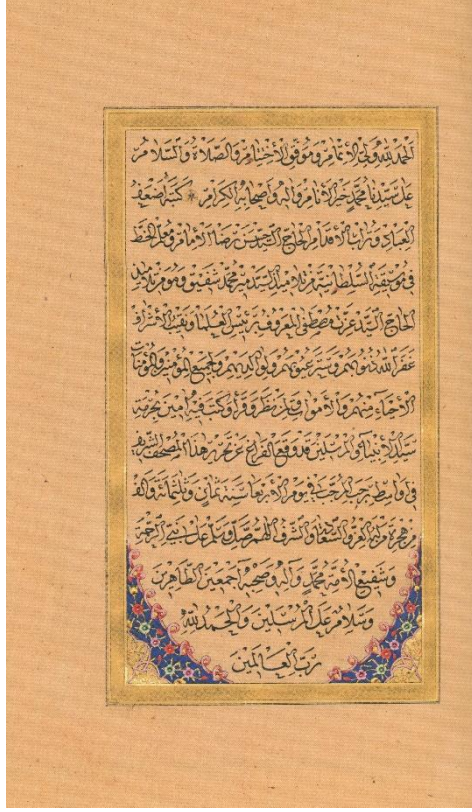 الحمد لله ولي الأتمام وموفق الأختتام والصلاة والسلام
على سيدنا محمد خير الأنام وآله وأصحابه الكرام * كتبه أضعف
العباد وتراب الأقدام الحاج السيد حسن رضا الأمام ومعلم الخط
في موسيقة السلطانية من تلاميذ السيد محمد شفيق وهو من تلاميذ
الحاج السيد عزت مصطفى المعروف برئيس العلما ونقيب الأشراف
غفر الله ذنوبهم وستر عيوبهم ولوالديهم ولجميع المؤمنين والمؤمنات
الأحياء منهم والأموات ولمن نظر وقرأ وكتب فيه آمين بحرمة
سيد الأنبياء والمرسلين قد وقع الفراغ عن تحرير هذا المصحف الشريف
في أواسط رجب المرجب في يوم الأربعا سنة ثمان وثلثمائة والف
من هجرة من له العز والسعادة والشرف اللهم صل وسلم على نبي الرحمة
وشفيع الأمة محمد وآله وصحبه أجمعين الطاهرين
وسلام على المرسلين والحمد لله
رب العالمين